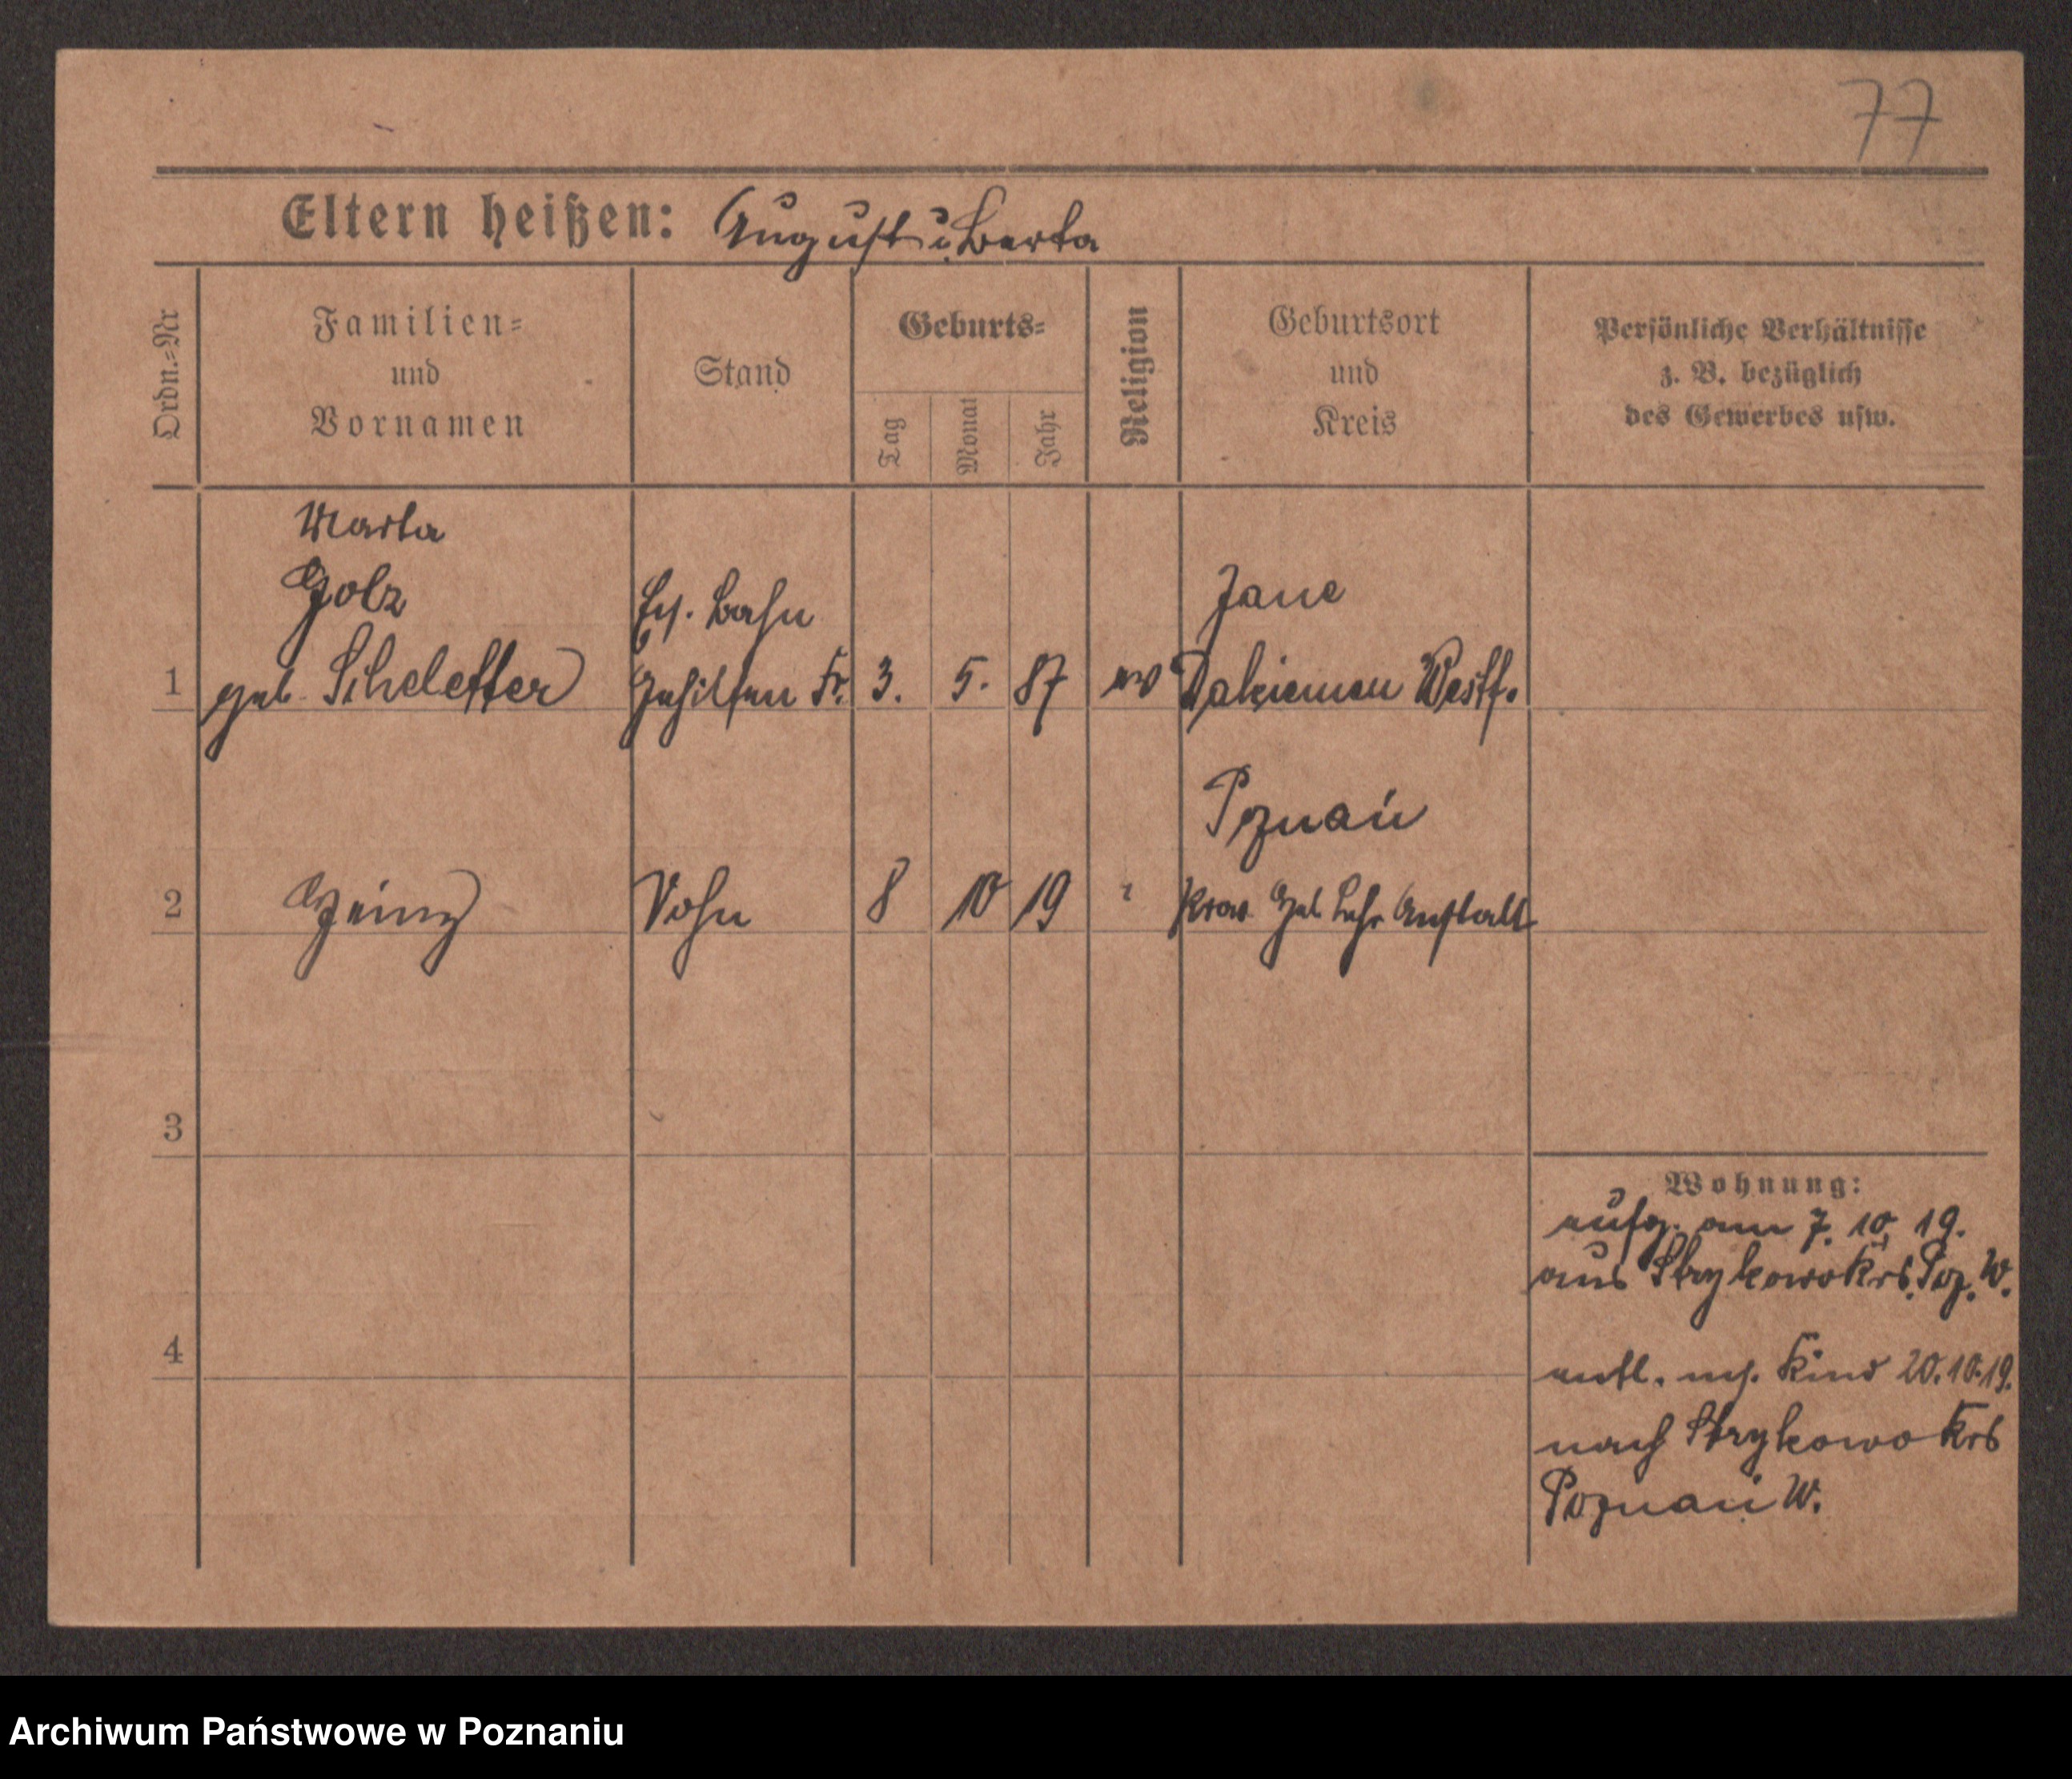 77
Eltern heißen: August u. Berta
Ordn.=Nr
Familien=
und
Vornamen
Stand
Geburts=
Tag
Monat
Jahr
Religion
Geburtsort
und
Kreis
Persönliche Verhältnisse
z. B. bezüglich
des Gewerbes usw.
Marta
Golz
geb.
Bahn
Gehilfen Fr.
3.
5.
87
ev
Westf.
1
Poznań
2
Heinz
Sohn
8
10
19
Heb Lehr Anstalt
3
4
Wohnung:
aufg. am 7. 10. 19.
aus Strykowo Krs. Poz. W.
entl. Kind 20.10.19.
nach Strykowo Krs
Poznań W.
Archiwum Państwowe w Poznaniu